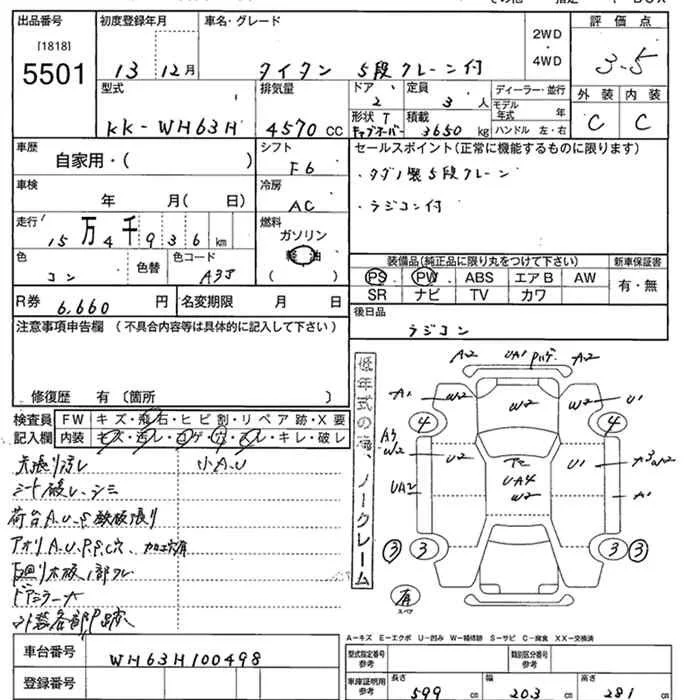 出品番号 初度登録年月 車名・グレード 2WD 評価点
[1818] ・
5501 13 12月 タイタン 5段クレーン付 4WD 3.5
型式 排気量 ドア 定員 ディーラー・並行 外装 内装
2 3人 モデル年式 年
KK-WH63H 4570cc 形状 積載 3650kg ハンドル 左・右 C C
車歴 シフト セールスポイント(正常に機能するものに限ります)
自家用・( ) F6 ・タダノ製5段クレーン
車検 冷房
年 月( 日) AC ・ラジコン付
走行 燃料
15万4千936km ガソリン
軽油
色 色替 色コード ( )
コン A3J
装備品(純正品に限り丸をつけて下さい) 新車保証書
PS PW ABS エアB AW 有・無
SR ナビ TV カワ
R券 6,660円 名変期限 月 日
後日品
ラジコン
注意事項申告欄(不具合内容等は具体的に記入して下さい)
修復歴 有〔箇所 〕
検査員 FW キズ・飛石・ヒビ割・リペア跡・X要
記入欄 内装 キズ・汚レ・コゲ・穴・スレ・キレ・破レ
天張り汚レ 小A.U
シート破レ、シミ
荷台A.U.S 鉄板張り
アオリA.U.P.S.C穴、加工穴有
低年式の為、ノークレーム
A2 UA1 A2
A1 W2 W2 W2 U1
4 4
W2 U2 U1
UA4
UA2 W2 A1
3 3 3 3
有
スペア
A-キズ E-エクボ U-凹み W-補修跡 S-サビ C-腐食 XX-交換済
車台番号 WH63H100498
登録番号
型式指定番号 参考 類別区分番号 参考
車庫証明用 参考 長さ 599cm 幅 203cm 高さ 281cm